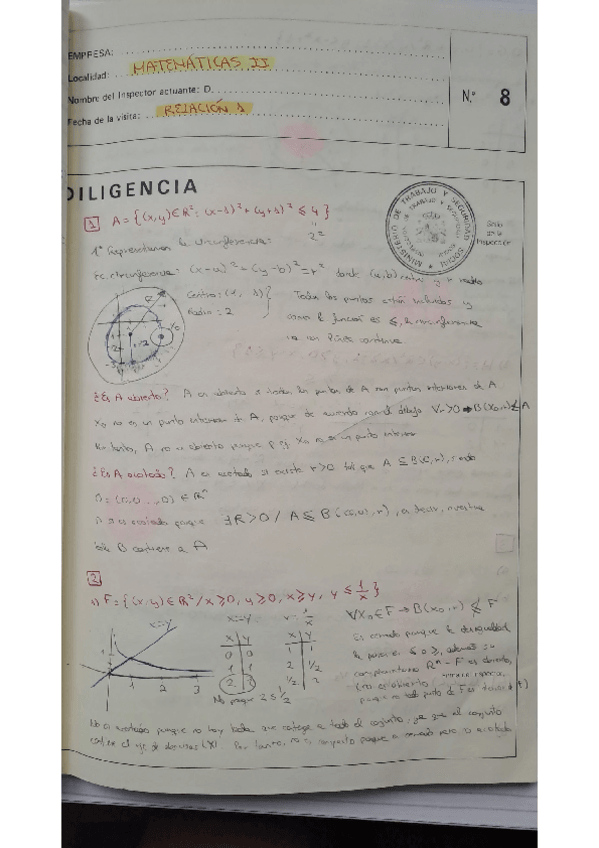 EMPRESA:
Localidad: MATEMÁTICAS II
Nombre del Inspector actuante: D.
Fecha de la visita: RELACIÓN 1
N.º 8
DILIGENCIA
MINISTERIO DE TRABAJO Y SEGURIDAD SOCIAL
1 A = {(x,y) ∈ R²: (x-1)² + (y+1)² ≤ 4}
2²
1º Representamos la circunferencia:
Ec. circunferencia: (x-a)² + (y-b)² = r² donde (a,b) centro y r radio
Radio: 2
Todos los puntos están incluidos y
como la función es ≤, la circunferencia
va con línea continua
¿Es A abierto? A es abierto si todos los puntos de A son puntos interiores de A
X₀ no es un punto interior de A, porque de acuerdo con el dibujo ∀r>0 → B(x₀,r) ⊈ A
Por tanto, A no es abierto porque p.ej. X₀ no es un punto interior
¿Es A acotado? A es acotado si existe r>0 tal que A ⊆ B(0,r), siendo
0 = (0,0...,0) ∈ Rⁿ
A sí es acotado porque ∃R>0 / A ⊆ B((0,0),r), es decir, existe una
bola B contiene a A
2
F = {(x,y) ∈ R² / x ≥ 0, y ≥ 0, x ≥ y, y ≤ 1/x}
x=y
x=y
x y
0 0
1 1
2 2
No porque 2 ≤ 1/2
x y
1 1
2 1/2
1/2 2
1 2 3
∀x₀ ∈ F → B(x₀,r) ⊈ F
Es cerrado porque la desigualdad
la posee ≤ o ≥, además su
complementario Rⁿ - F es abierto,
No es acotado porque no hay bola que contenga a todo el conjunto, ya que el conjunto
contiene el eje de abscisas (X). Por tanto, no es compacto porque es cerrado pero no es acotado